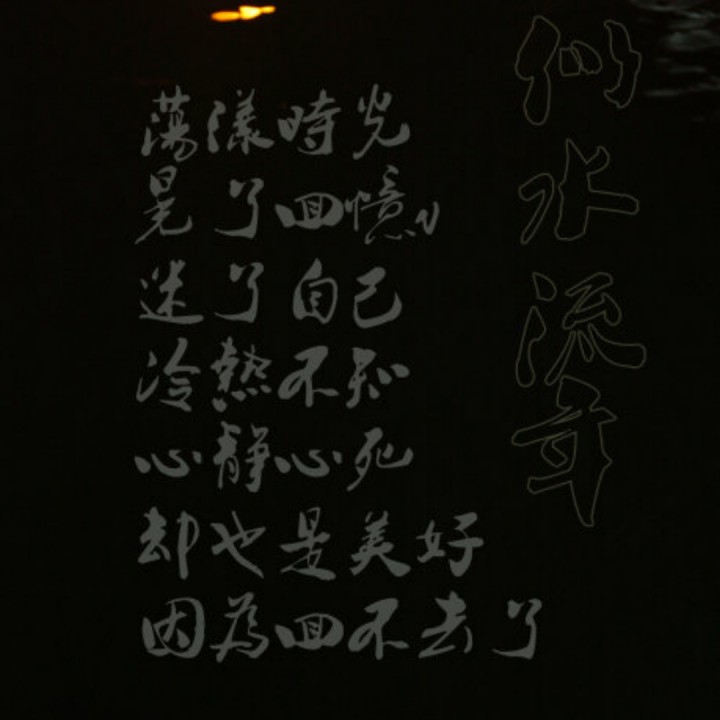 似水流年
蕩漾時光
晃了回憶
迷了自己
冷熱不知
心靜心死
却也是美好
因為回不去了